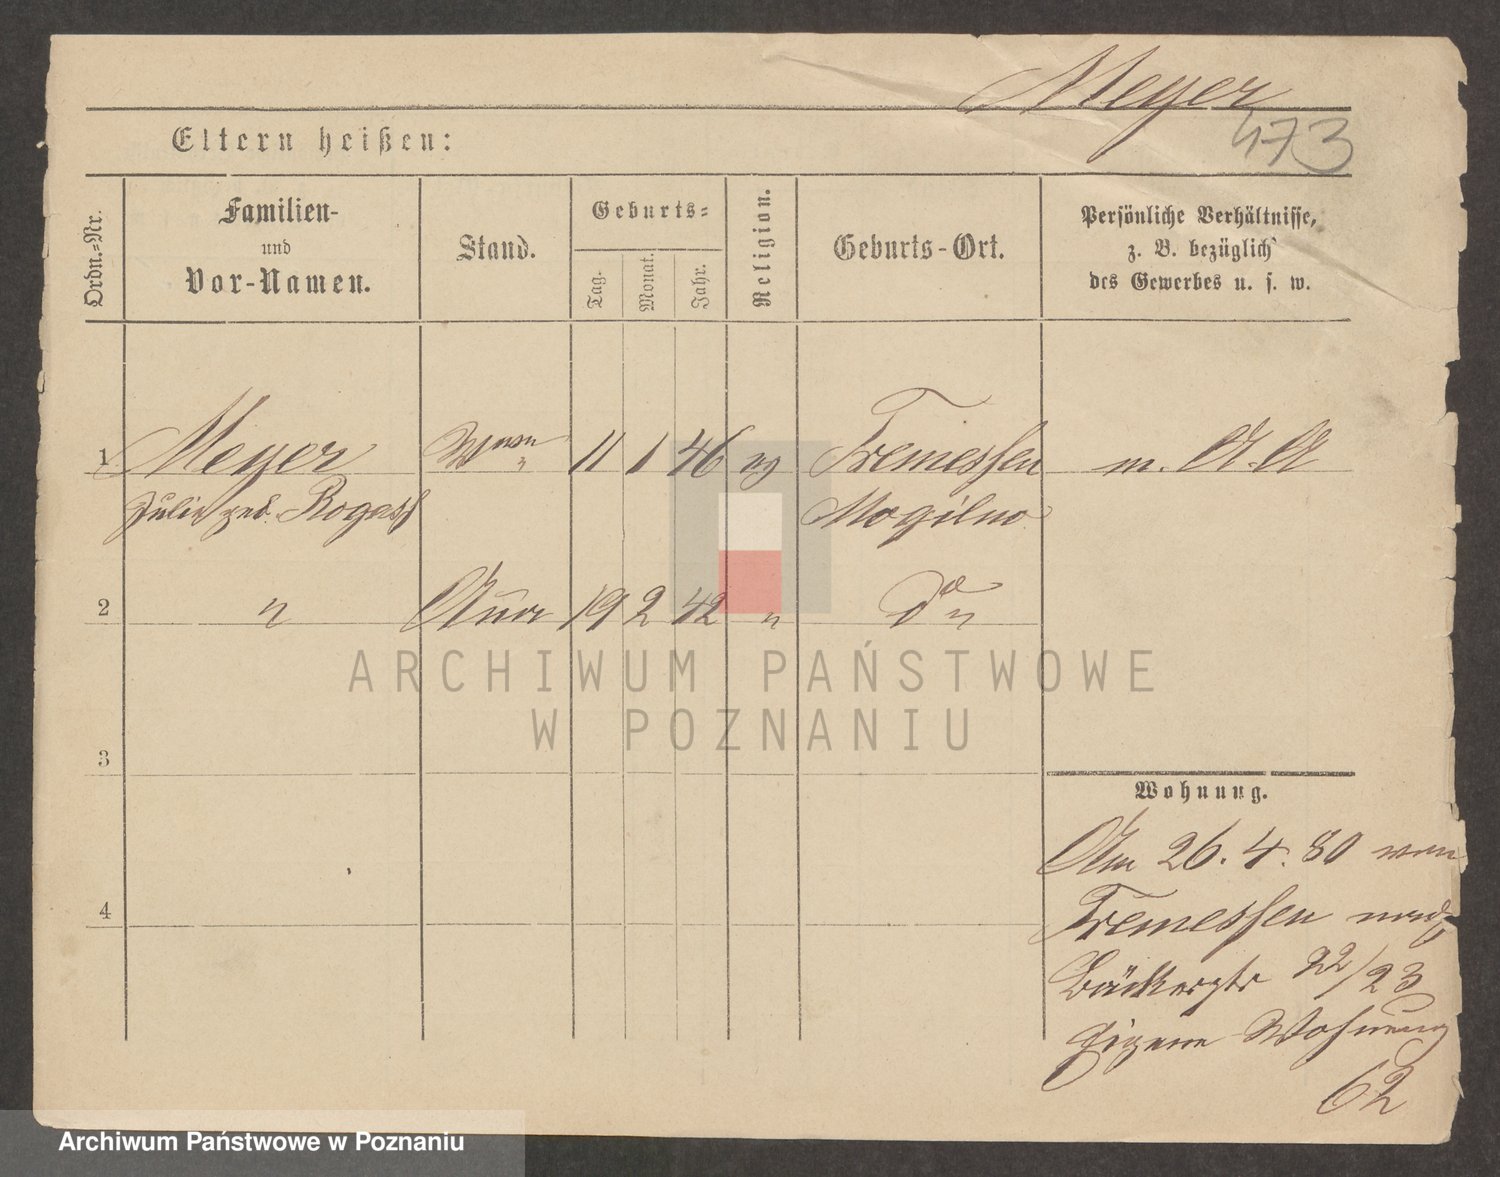 Meyer
473
Eltern heißen:
Ordn.-Nr.
Familien-
und
Vor-Namen.
Stand.
Geburts-
Tag.
Monat.
Jahr.
Religion.
Geburts-Ort.
Persönliche Verhältnisse,
z. B. bezüglich
des Gewerbes u. s. w.
1 Meyer 11 1 46 Tremessen m. A. A
Julie geb. Rogass Mogilno
2 " 19 2 42 " do "
ARCHIWUM PAŃSTWOWE
W POZNANIU
3
Wohnung.
Am 26.4.80 von
4
Tremessen nach
Bäckerstr 22/23
eigene Wohnung
62
Archiwum Państwowe w Poznaniu